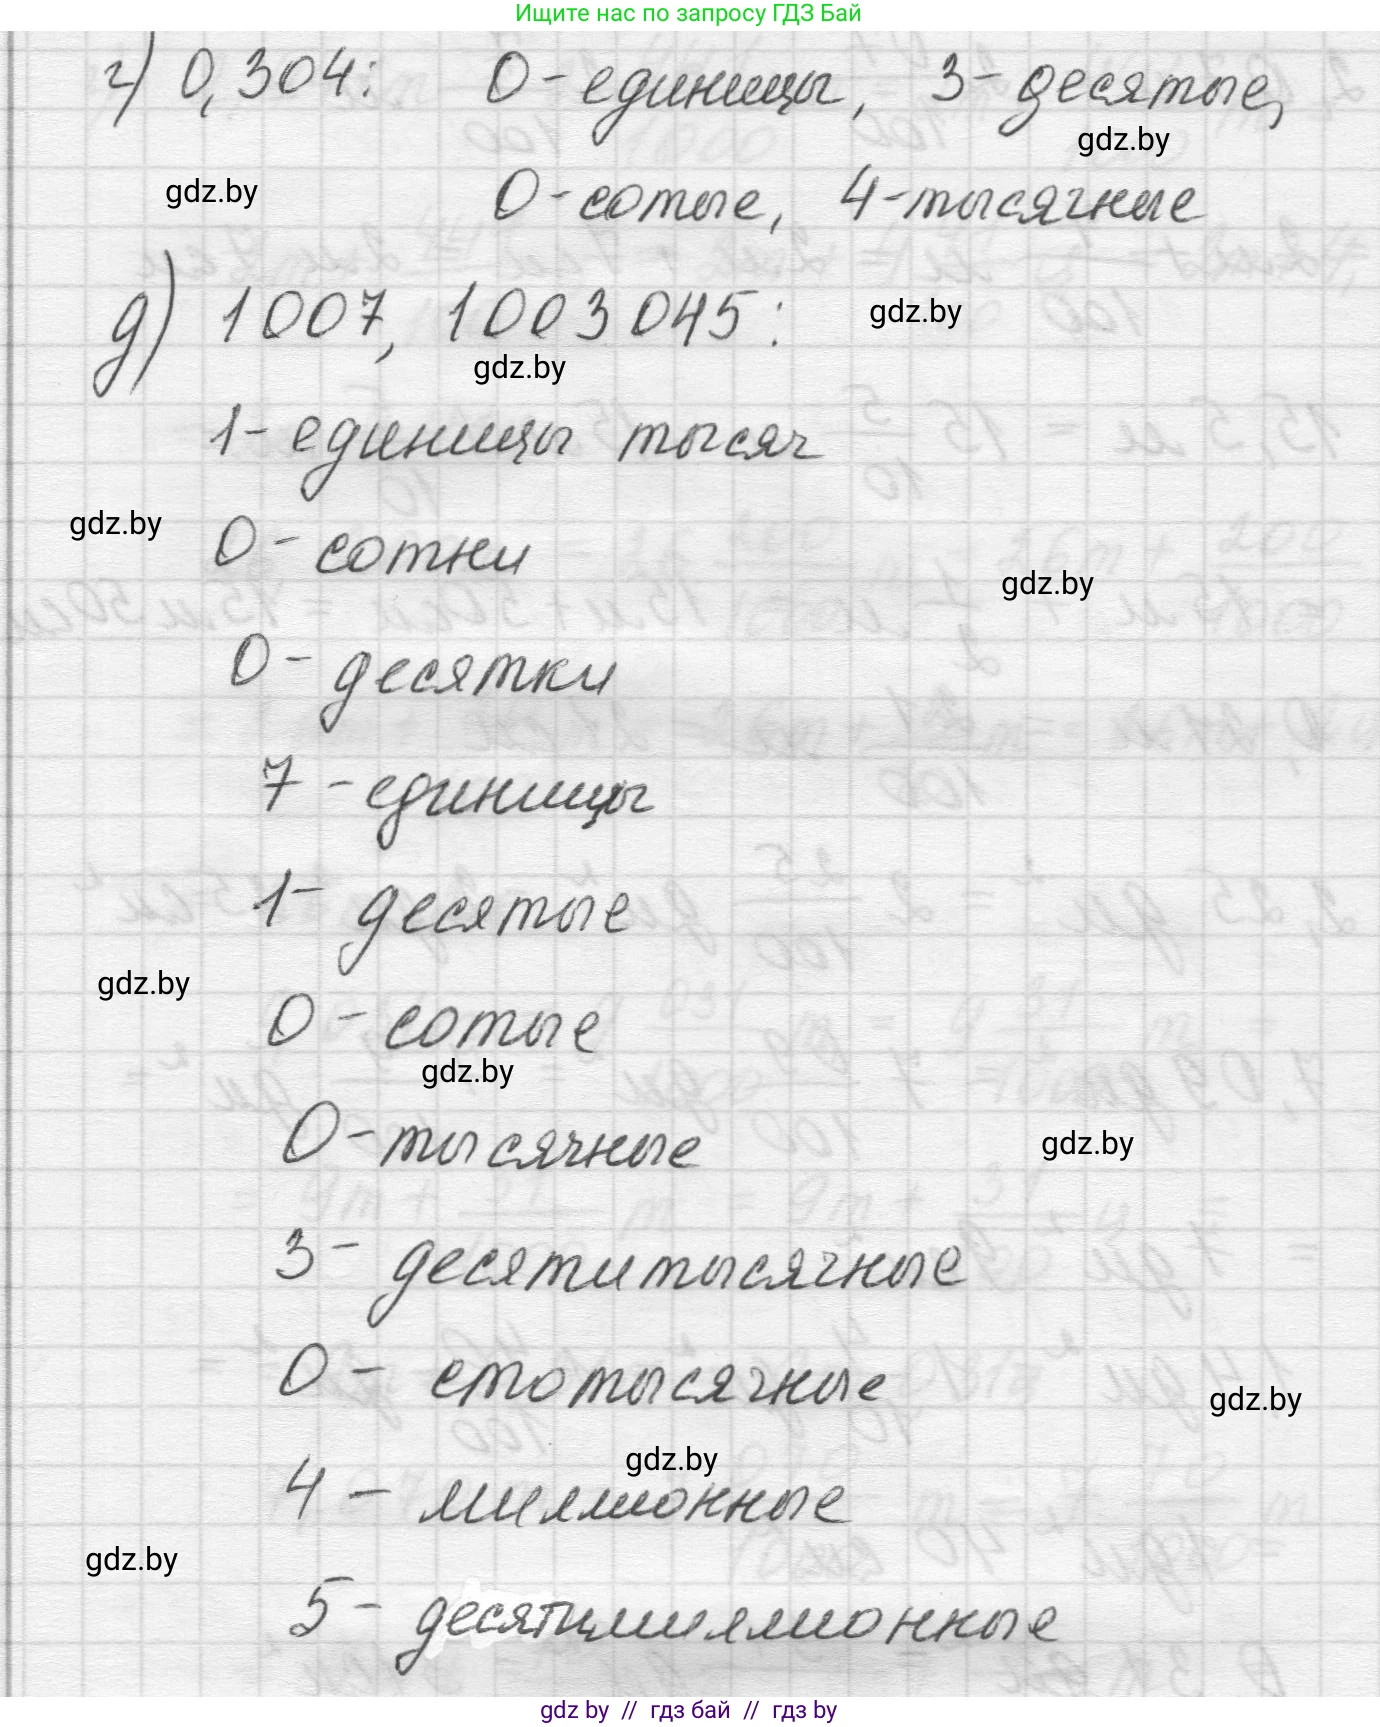 Ищите нас по запросу ГДЗ Бай
г) 0,304: 0 - единицы, 3 - десятые,
gdz.by
gdz.by
0 - сотые, 4 - тысячные
д) 1007, 1003045:
gdz.by
gdz.by
1 - единицы тысяч
gdz.by
0 - сотни
gdz.by
0 - десятки
7 - единицы
1 - десятые
gdz.by
0 - сотые
gdz.by
0 - тысячные
gdz.by
3 - десятитысячные
0 - стотысячные
gdz.by
gdz.by
4 - миллионные
gdz.by
5 - десятимиллионные
gdz by // гдз бай // гдз by